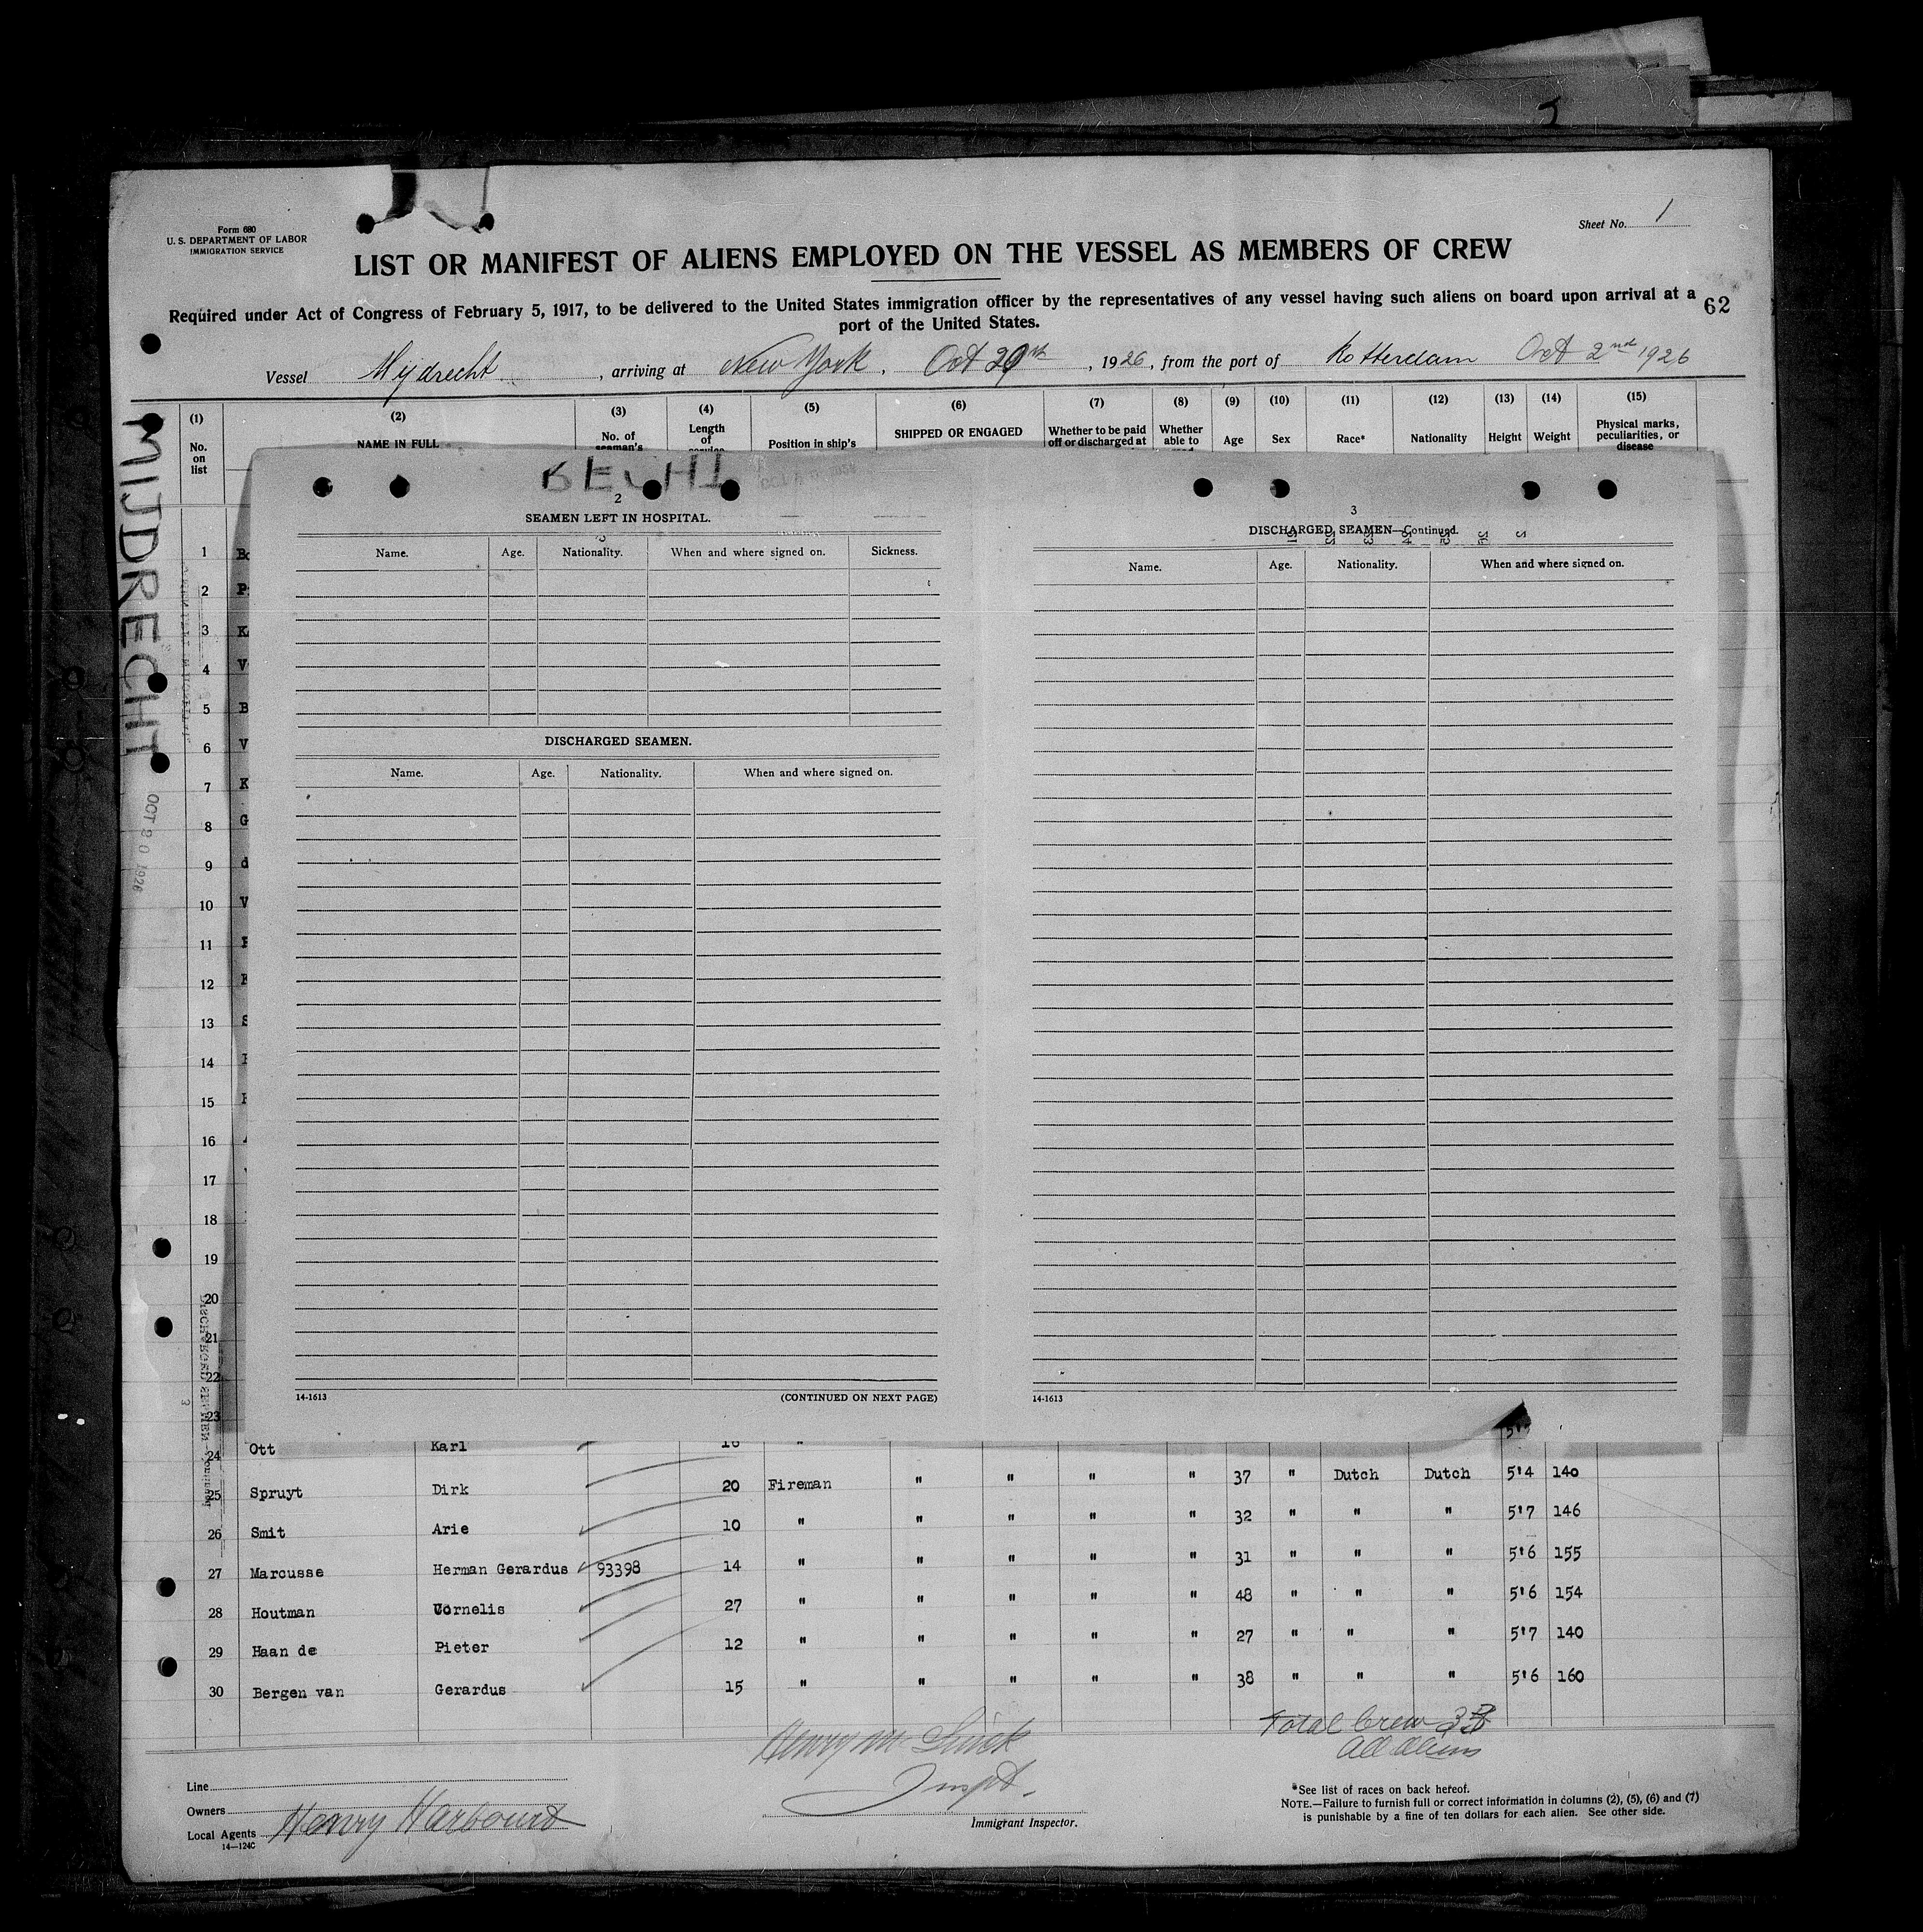 Form 680
U. S. DEPARTMENT OF LABOR
IMMIGRATION SERVICE
Sheet No. 1
LIST OR MANIFEST OF ALIENS EMPLOYED ON THE VESSEL AS MEMBERS OF CREW
Required under Act of Congress of February 5, 1917, to be delivered to the United States immigration officer by the representatives of any vessel having such aliens on board upon arrival at a
port of the United States.
62
Vessel Mijdrecht, arriving at New York, Oct 20th, 1926, from the port of Rotterdam Oct 2nd 1926
(1) (2) (3) (4) (5) (6) (7) (8) (9) (10) (11) (12) (13) (14) (15)
No. on list
NAME IN FULL
No. of seaman's
Length of service
Position in ship's
SHIPPED OR ENGAGED
Whether to be paid off or discharged at
Whether able to
Age
Sex
Race*
Nationality
Height
Weight
Physical marks, peculiarities, or disease
MIJDRECHT
OCT 20 1926
2
SEAMEN LEFT IN HOSPITAL.
Name. Age. Nationality. When and where signed on. Sickness.
DISCHARGED SEAMEN.
Name. Age. Nationality. When and where signed on.
14-1613
(CONTINUED ON NEXT PAGE)
3
DISCHARGED SEAMEN—Continued.
Name. Age. Nationality. When and where signed on.
14-1613
1
2
3
4
5
6
7
8
9
10
11
12
13
14
15
16
17
18
19
20
21
22
23
24 Ott Karl
25 Spruyt Dirk 20 Fireman " " " " 37 " Dutch Dutch 5'4 140
26 Smit Arie 10 " " " " " 32 " " " 5'7 146
27 Marcusse Herman Gerardus 93398 14 " " " " " 31 " " " 5'6 155
28 Houtman Cornelis 27 " " " " " 48 " " " 5'6 154
29 Haan de Pieter 12 " " " " " 27 " " " 5'7 140
30 Bergen van Gerardus 15 " " " " " 38 " " " 5'6 160
Total Crew
All Aliens
Henry
Inspt.
Immigrant Inspector.
Line
Owners
Local Agents Henry
14—124C
*See list of races on back hereof.
NOTE.—Failure to furnish full or correct information in columns (2), (5), (6) and (7)
is punishable by a fine of ten dollars for each alien. See other side.